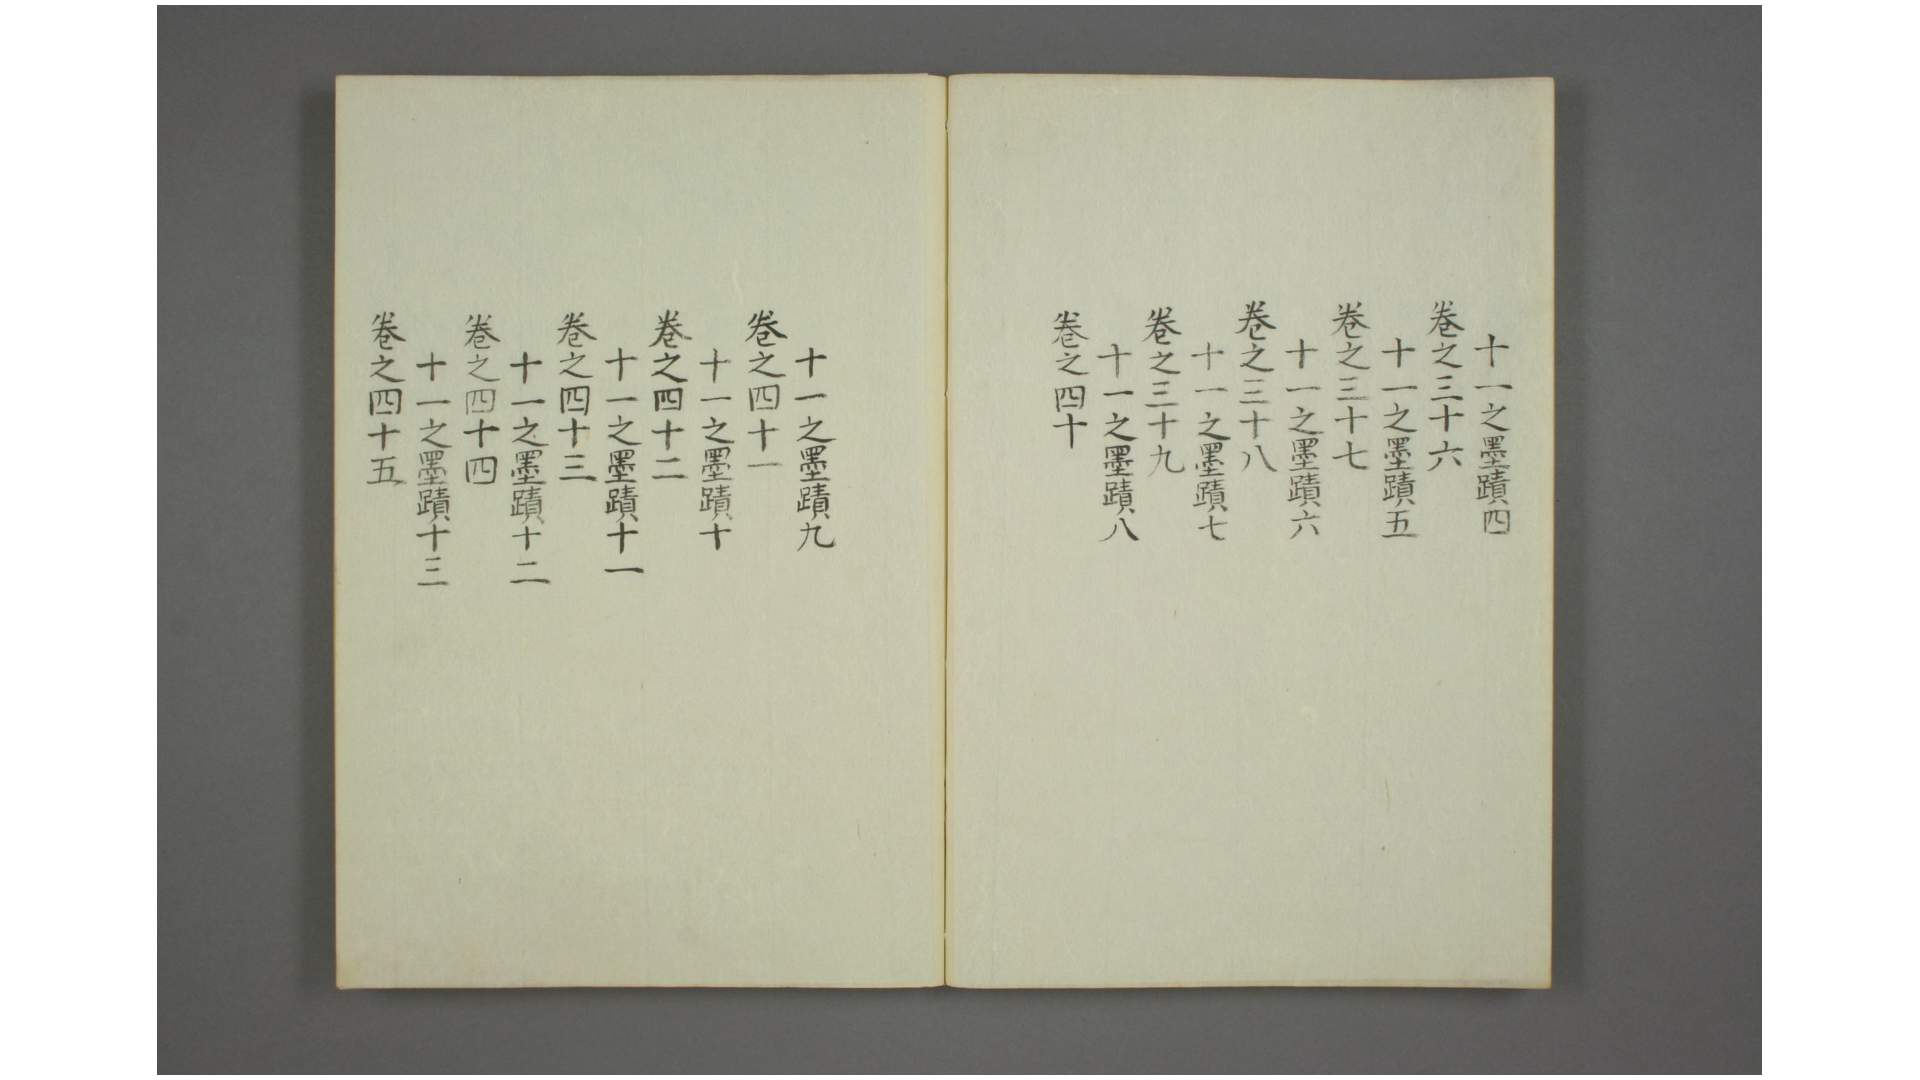 十一之墨蹟四
卷之三十六
十一之墨蹟五
卷之三十七
十一之墨蹟六
卷之三十八
十一之墨蹟七
卷之三十九
十一之墨蹟八
卷之四十
十一之墨蹟九
卷之四十一
十一之墨蹟十
卷之四十二
十一之墨蹟十一
卷之四十三
十一之墨蹟十二
卷之四十四
十一之墨蹟十三
卷之四十五